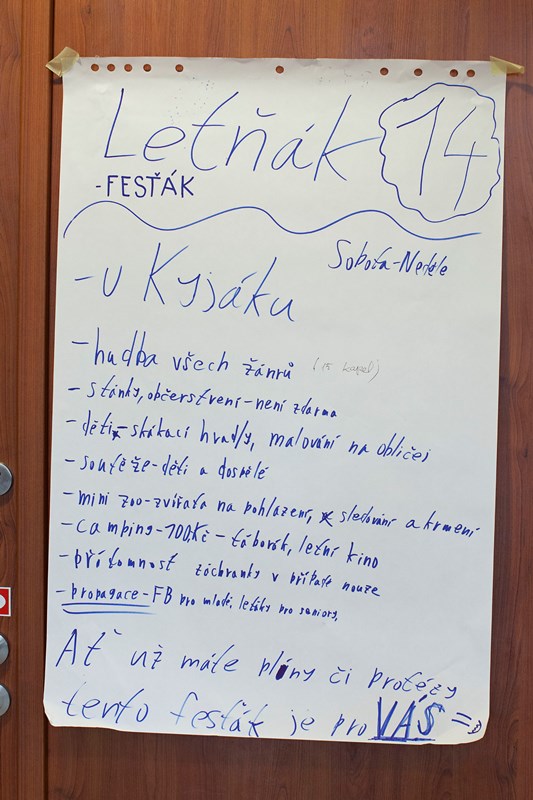 Letňák 14
-FESŤÁK
Sobota-Neděle
-U Kyjáku
-hudba všech žánrů (15 kapel)
-stánky, občerstvení-není zdarma
-děti-skákací hrady, malování na obličej
-soutěže-děti a dospělé
-mini zoo-zvířata na pohlazení, sledování a krmení
-camping-100Kč-táborák, letní kino
-přítomnost záchranky v případě nouze
-propagace-FB pro mladé, letáky pro seniory,
Ať už máte plíny či protézy
tento fesťák je pro VÁS =)